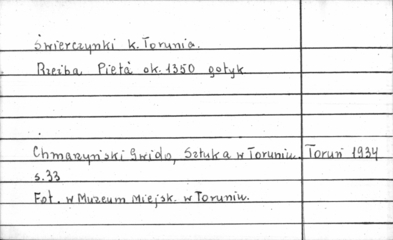 Świerczynki k. Torunia.
Rzeźba Pietà ok. 1350 gotyk
Chmarzyński Gwido, Sztuka w Toruniu. Toruń 1934
s. 33
Fot. w Muzeum Miejsk. w Toruniu.